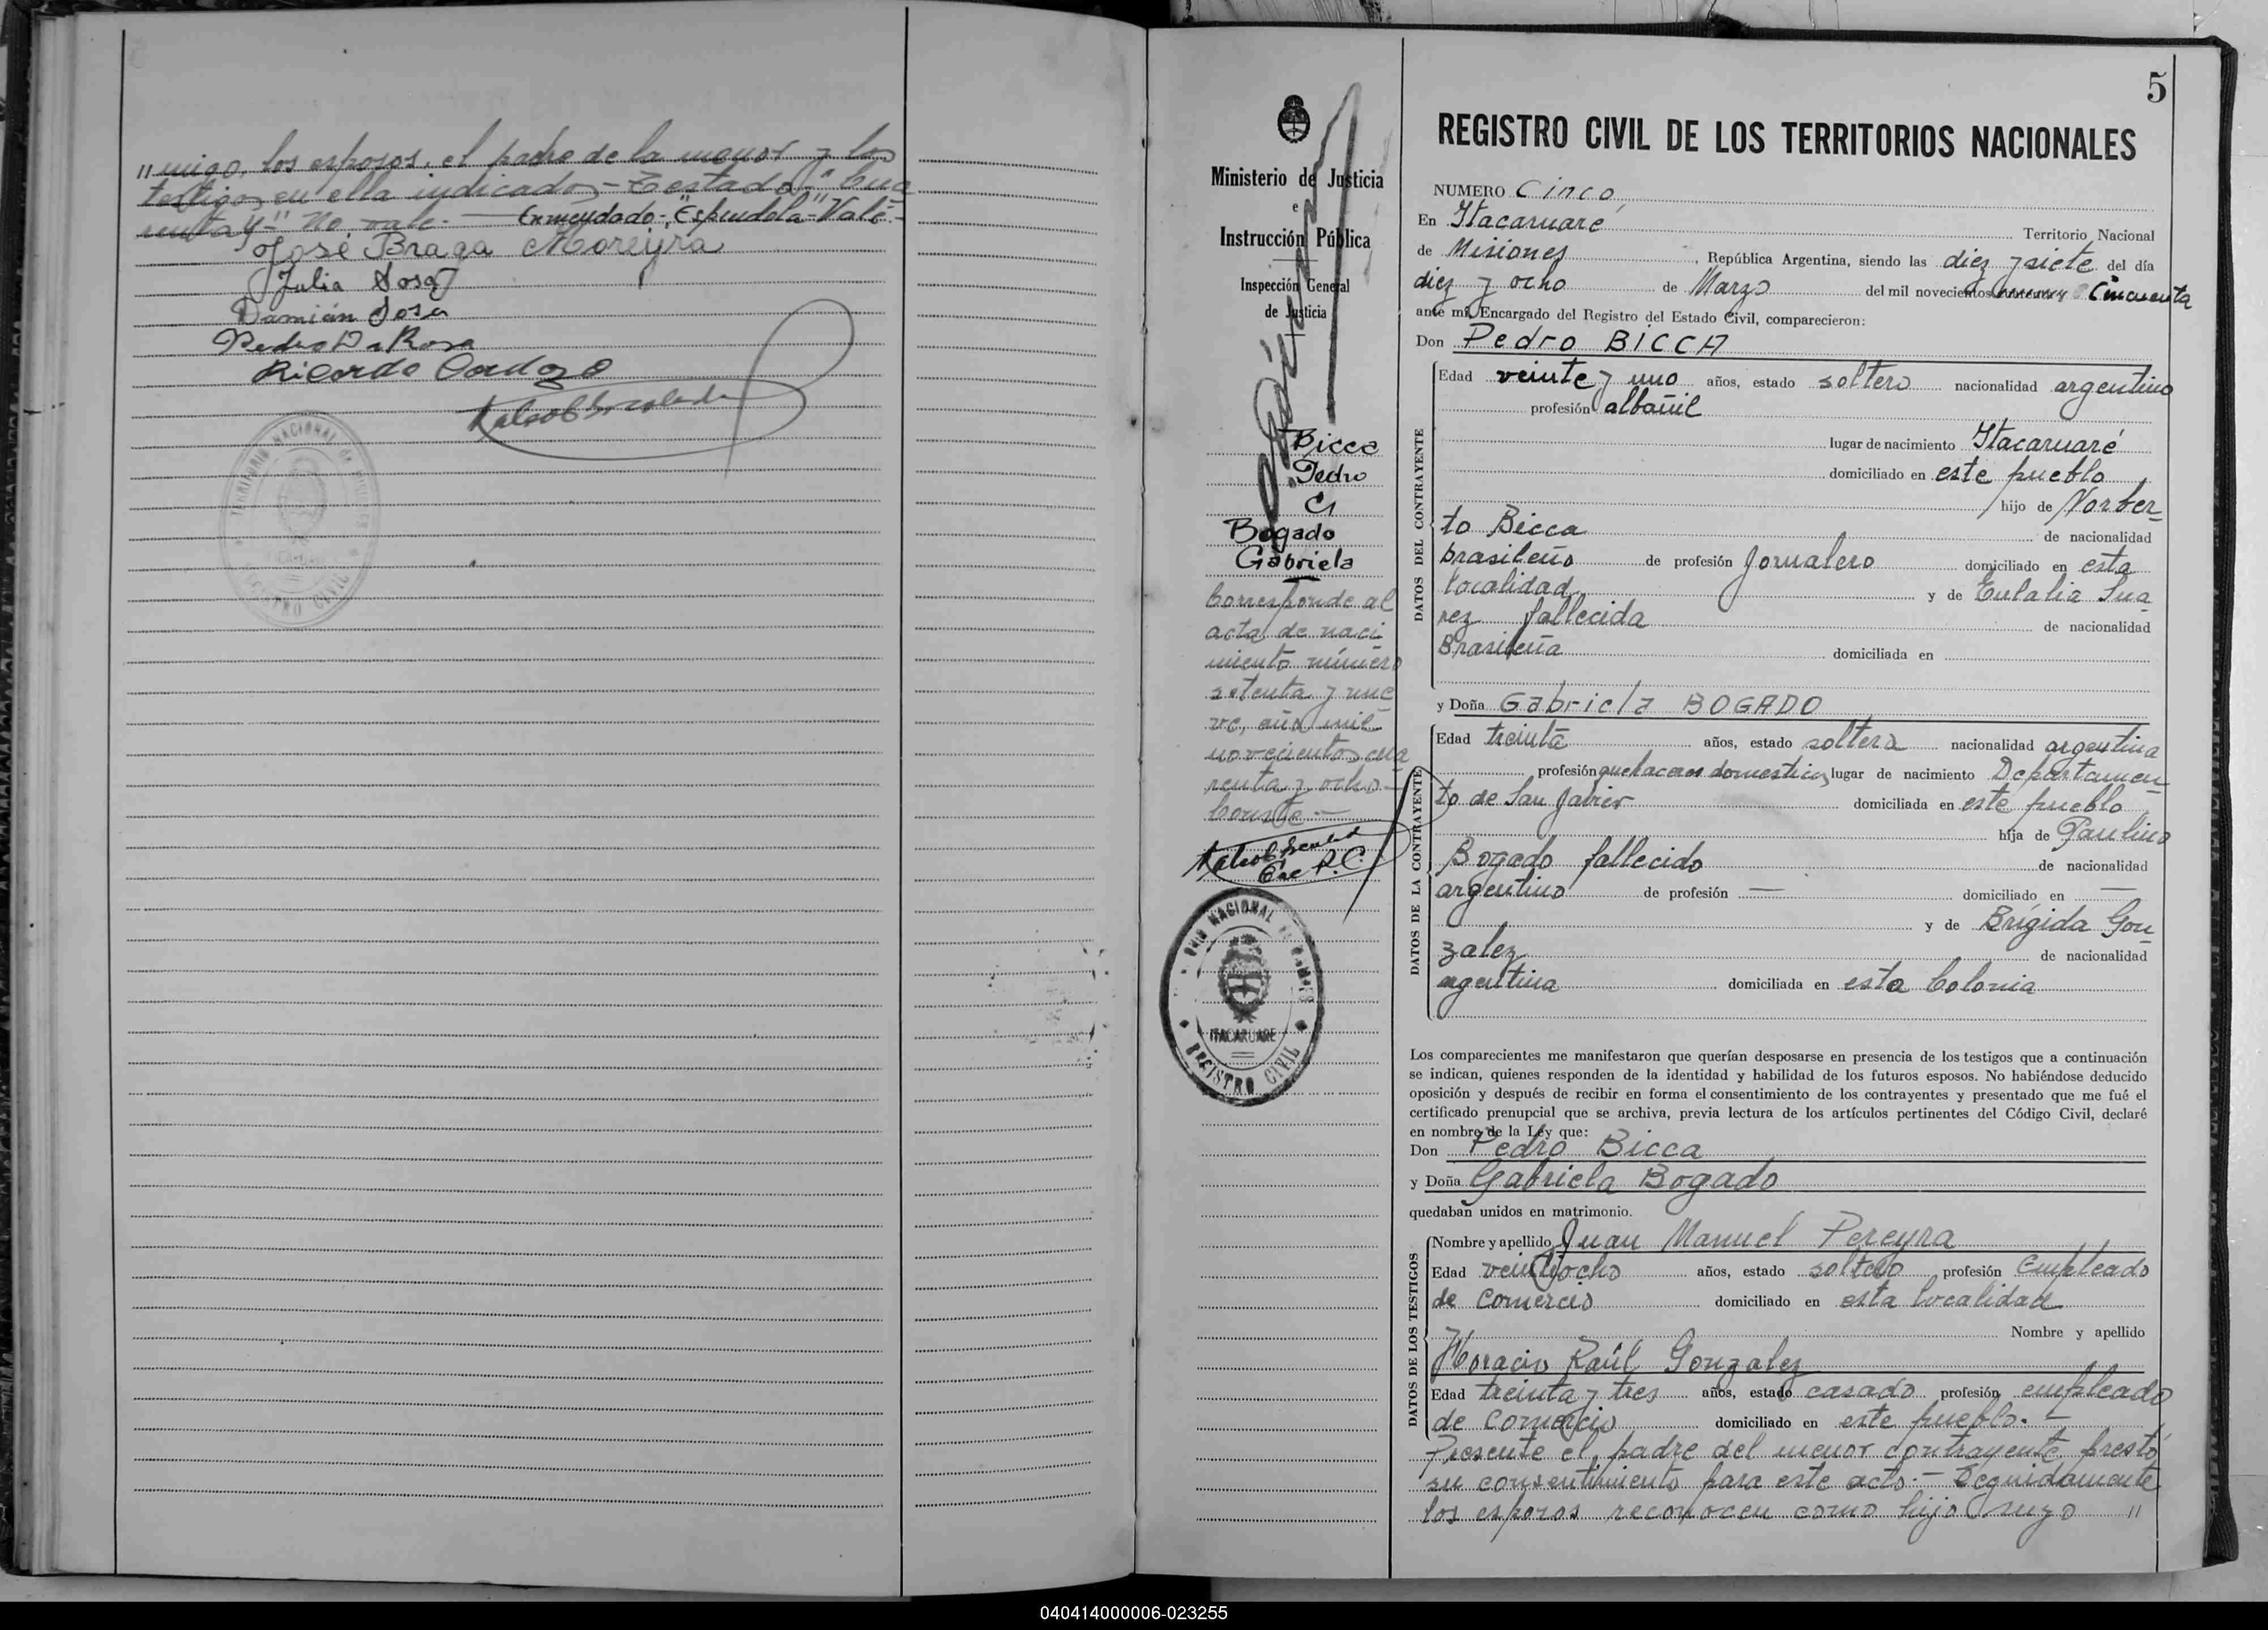 "migo, los esposos, el padre de la menor y los
testigos en ella indicados - Testado: "Cua
renta y" No vale. — Enmendado: "Espindola" Vale -
José Braga Moreyra
Julia Sosa
Damián Sosa
Pedro Da Rosa
Ricardo Cardozo
TERRITORIO NACIONAL DE
REGISTRO CIVIL
5
Ministerio de Justicia
e
Instrucción Pública
Inspección General
de Justicia
Bicca
Pedro
C/
Bogado
Gabriela
Corresponde al
acta de naci
miento número
setenta y nue
ve, año mil
novecientos cua
renta y ocho -
Conste. —
Enc R.C.
NACIONAL
ITACARUARE
REGISTRO CIVIL
REGISTRO CIVIL DE LOS TERRITORIOS NACIONALES
NUMERO Cinco
En Itacaruaré Territorio Nacional
de Misiones, República Argentina, siendo las diez y siete del día
diez y ocho de Marzo del mil novecientos Cincuenta
ante mí, Encargado del Registro del Estado Civil, comparecieron:
Don Pedro BICCA
DATOS DEL CONTRAYENTE
Edad veinte y uno años, estado soltero nacionalidad argentino
profesión albañil
lugar de nacimiento Itacaruaré
domiciliado en este pueblo
hijo de Norber_
to Bicca de nacionalidad
brasileño de profesión Jornalero domiciliado en esta
localidad y de Eulalia Sua_
rez fallecida de nacionalidad
Brasileña domiciliada en
y Doña Gabriela BOGADO
DATOS DE LA CONTRAYENTE
Edad treinta años, estado soltera nacionalidad argentina
profesión quehaceres domesticos lugar de nacimiento Departamen_
to de San Javier domiciliada en este pueblo
hija de Paulino
Bogado fallecido de nacionalidad
argentino de profesión — domiciliado en —
y de Brígida Gon_
zalez de nacionalidad
argentina domiciliada en esta Colonia
Los comparecientes me manifestaron que querían desposarse en presencia de los testigos que a continuación
se indican, quienes responden de la identidad y habilidad de los futuros esposos. No habiéndose deducido
oposición y después de recibir en forma el consentimiento de los contrayentes y presentado que me fué el
certificado prenupcial que se archiva, previa lectura de los artículos pertinentes del Código Civil, declaré
en nombre de la Ley que:
Don Pedro Bicca
y Doña Gabriela Bogado
quedaban unidos en matrimonio.
DATOS DE LOS TESTIGOS
Nombre y apellido Juan Manuel Pereyra
Edad veintiocho años, estado soltero profesión Empleado
de Comercio domiciliado en esta localidad
Nombre y apellido
Horacio Raúl Gonzalez
Edad treinta y tres años, estado casado profesión empleado
de Comercio domiciliado en este pueblo. —
Presente el padre del menor contrayente prestó
su consentimiento para este acto. - Seguidamente
los esposos reconocen como hijo suyo "
040414000006-023255